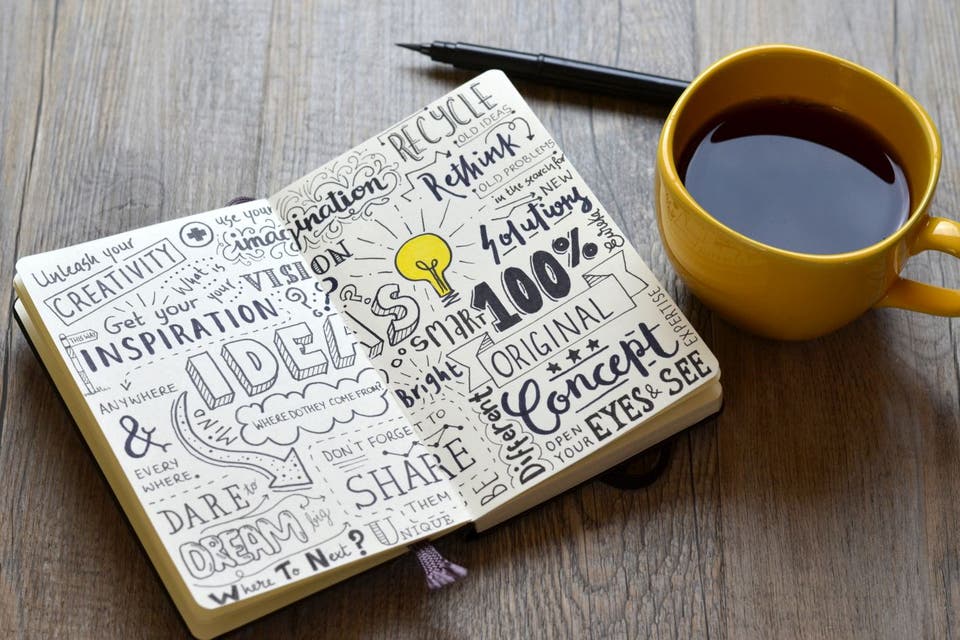 Unleash your
CREATIVITY
use your
imagination
What is
your
VISION
Get your
INSPIRATION
THIS WAY
ANYWHERE
&
EVERY
WHERE.
IDEAS
MIND
WHERE DO THEY COME FROM?
DON'T FORGET TO
SHARE
THEM
DARE to
DREAM big
Where To Next?
BE
UNIQUE
RECYCLE
OLD IDEAS
Rethink
OLD PROBLEMS
in the search for
NEW
Solutions
SMART
100%
ORIGINAL
Bright
Different
Concept
EXPERTISE
OPEN
YOUR
EYES & SEE